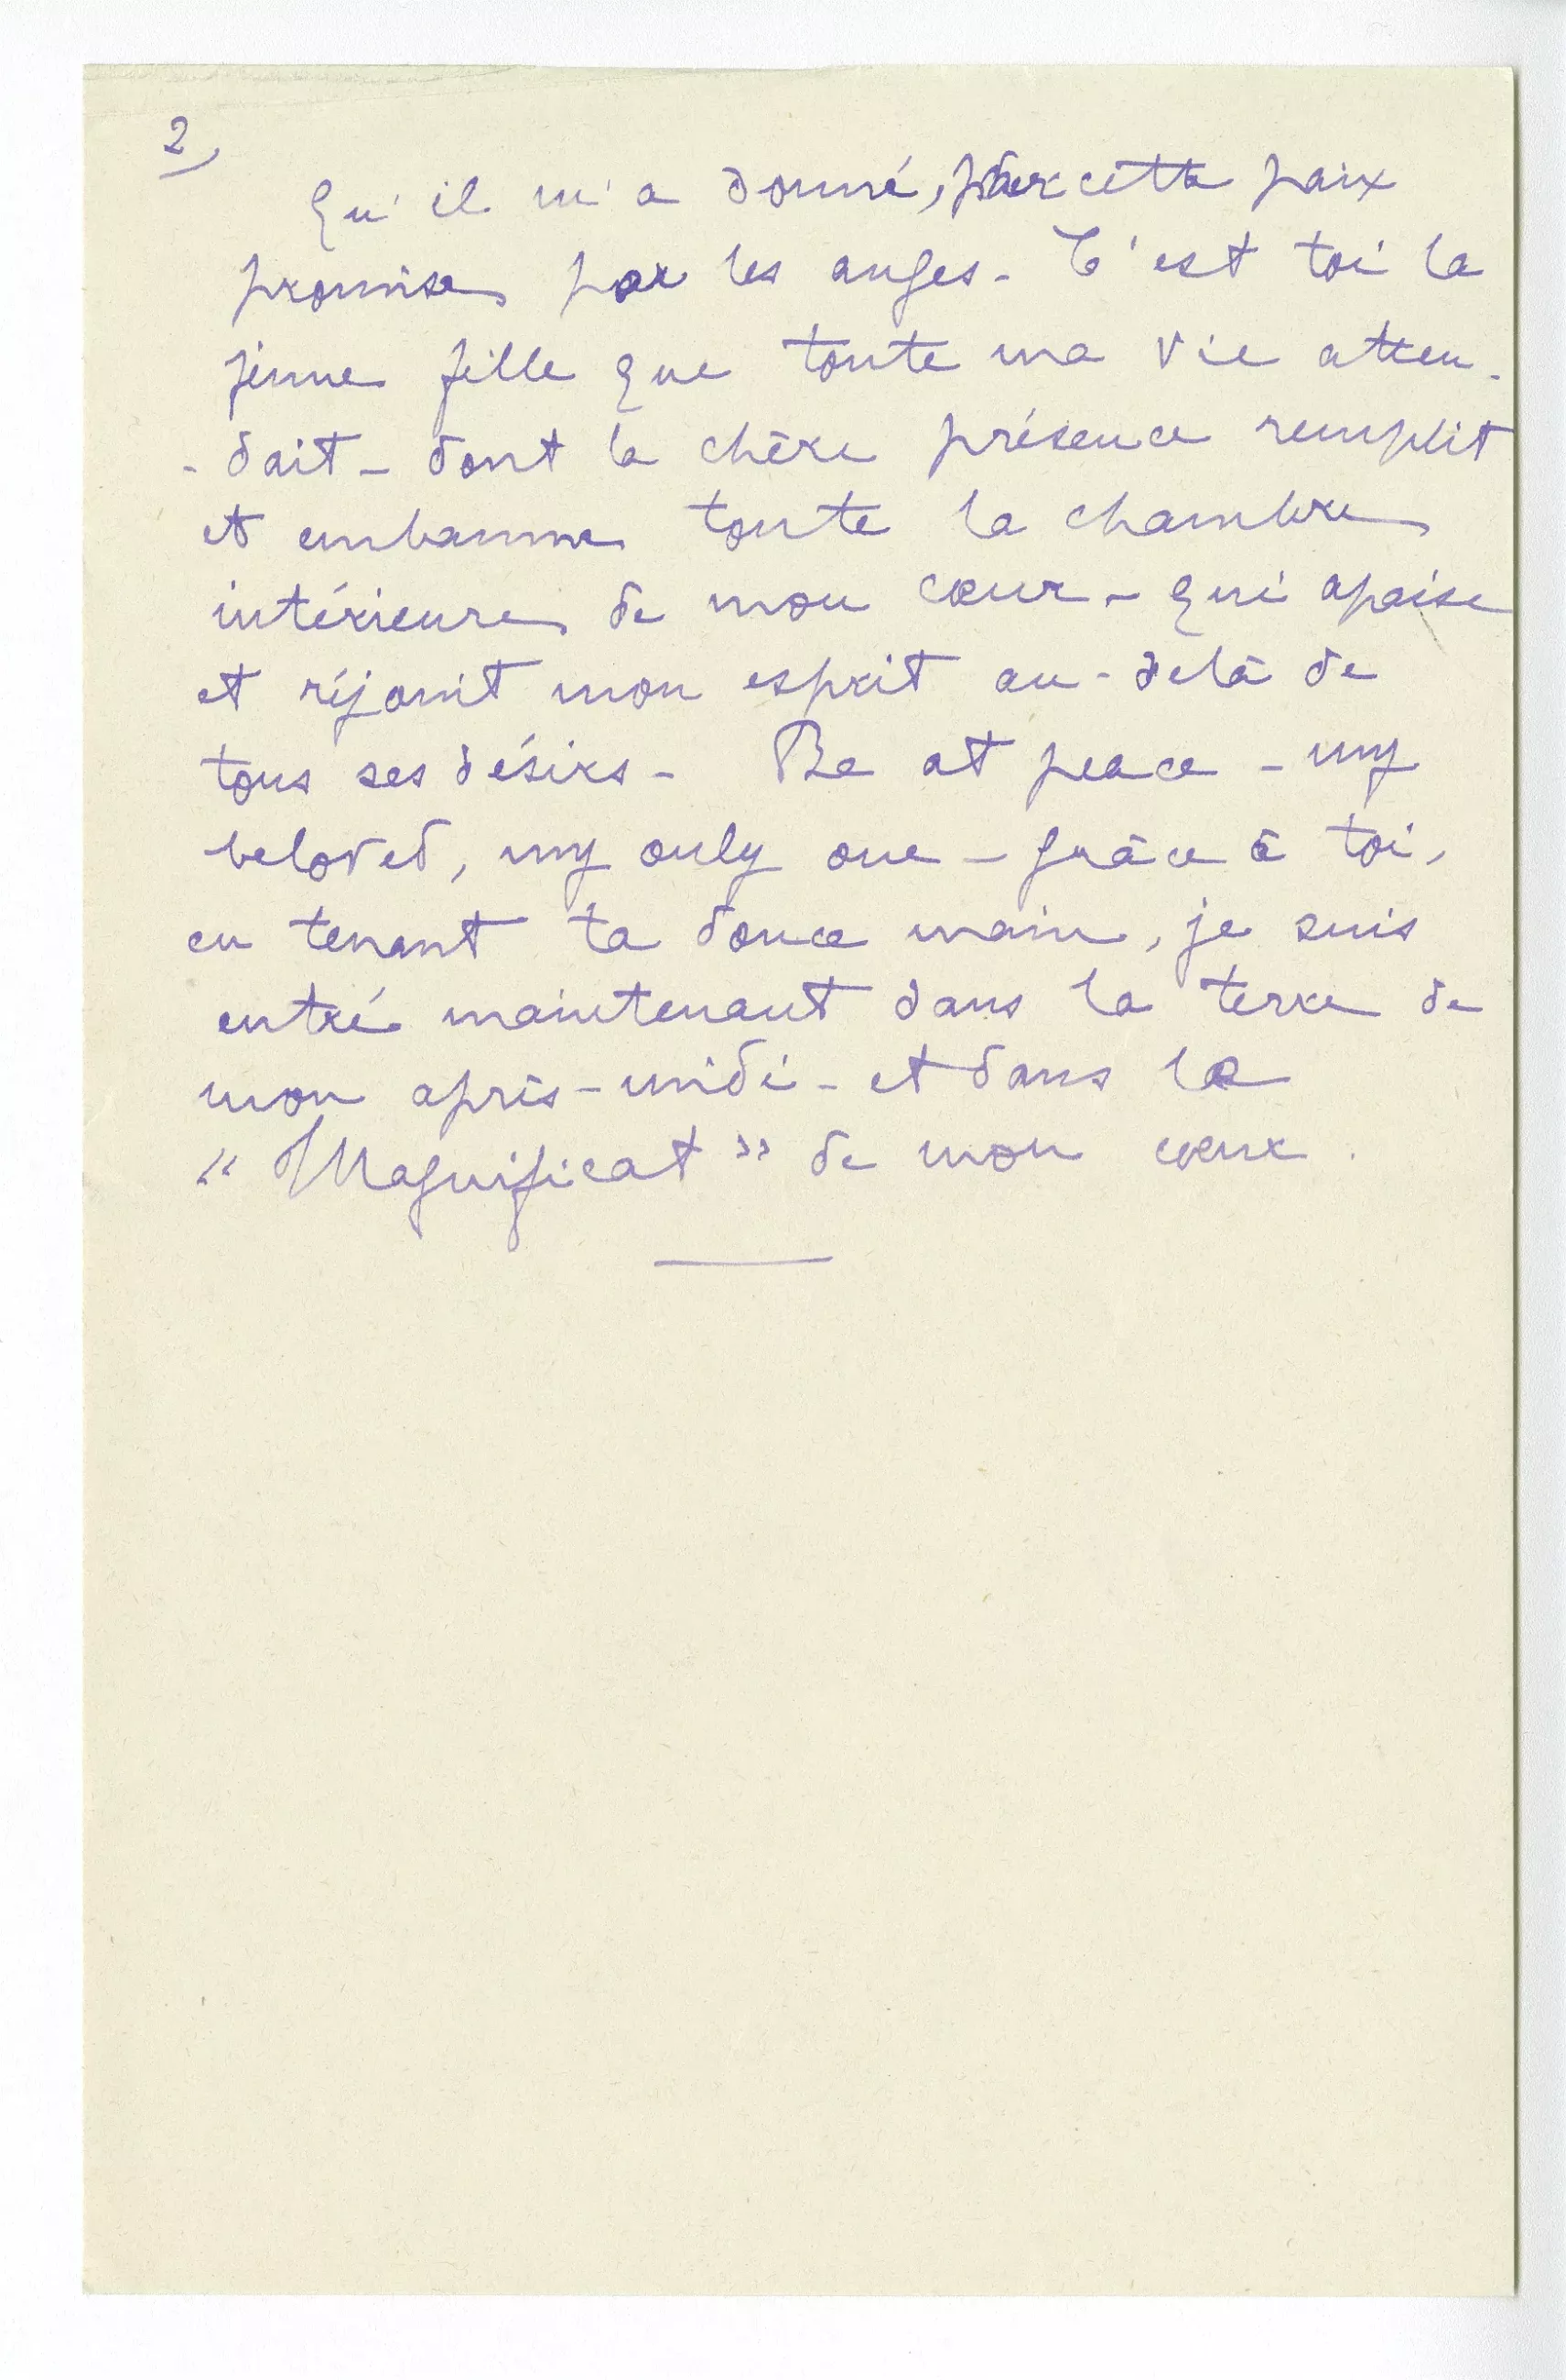 2/
qu'il m'a donné, par cette paix
promise par les anges - C'est toi la
jeune fille que toute ma vie atten-
- dait - dont la chère présence remplit
et embaume toute la chambre
intérieure de mon cœur - qui apaise
et réjouit mon esprit au-delà de
tous ses désirs - Be at peace - my
beloved, my only one - grâce à toi,
en tenant ta douce main, je suis
entré maintenant dans la terre de
mon après-midi - et dans le
"Magnificat" de mon cœur.